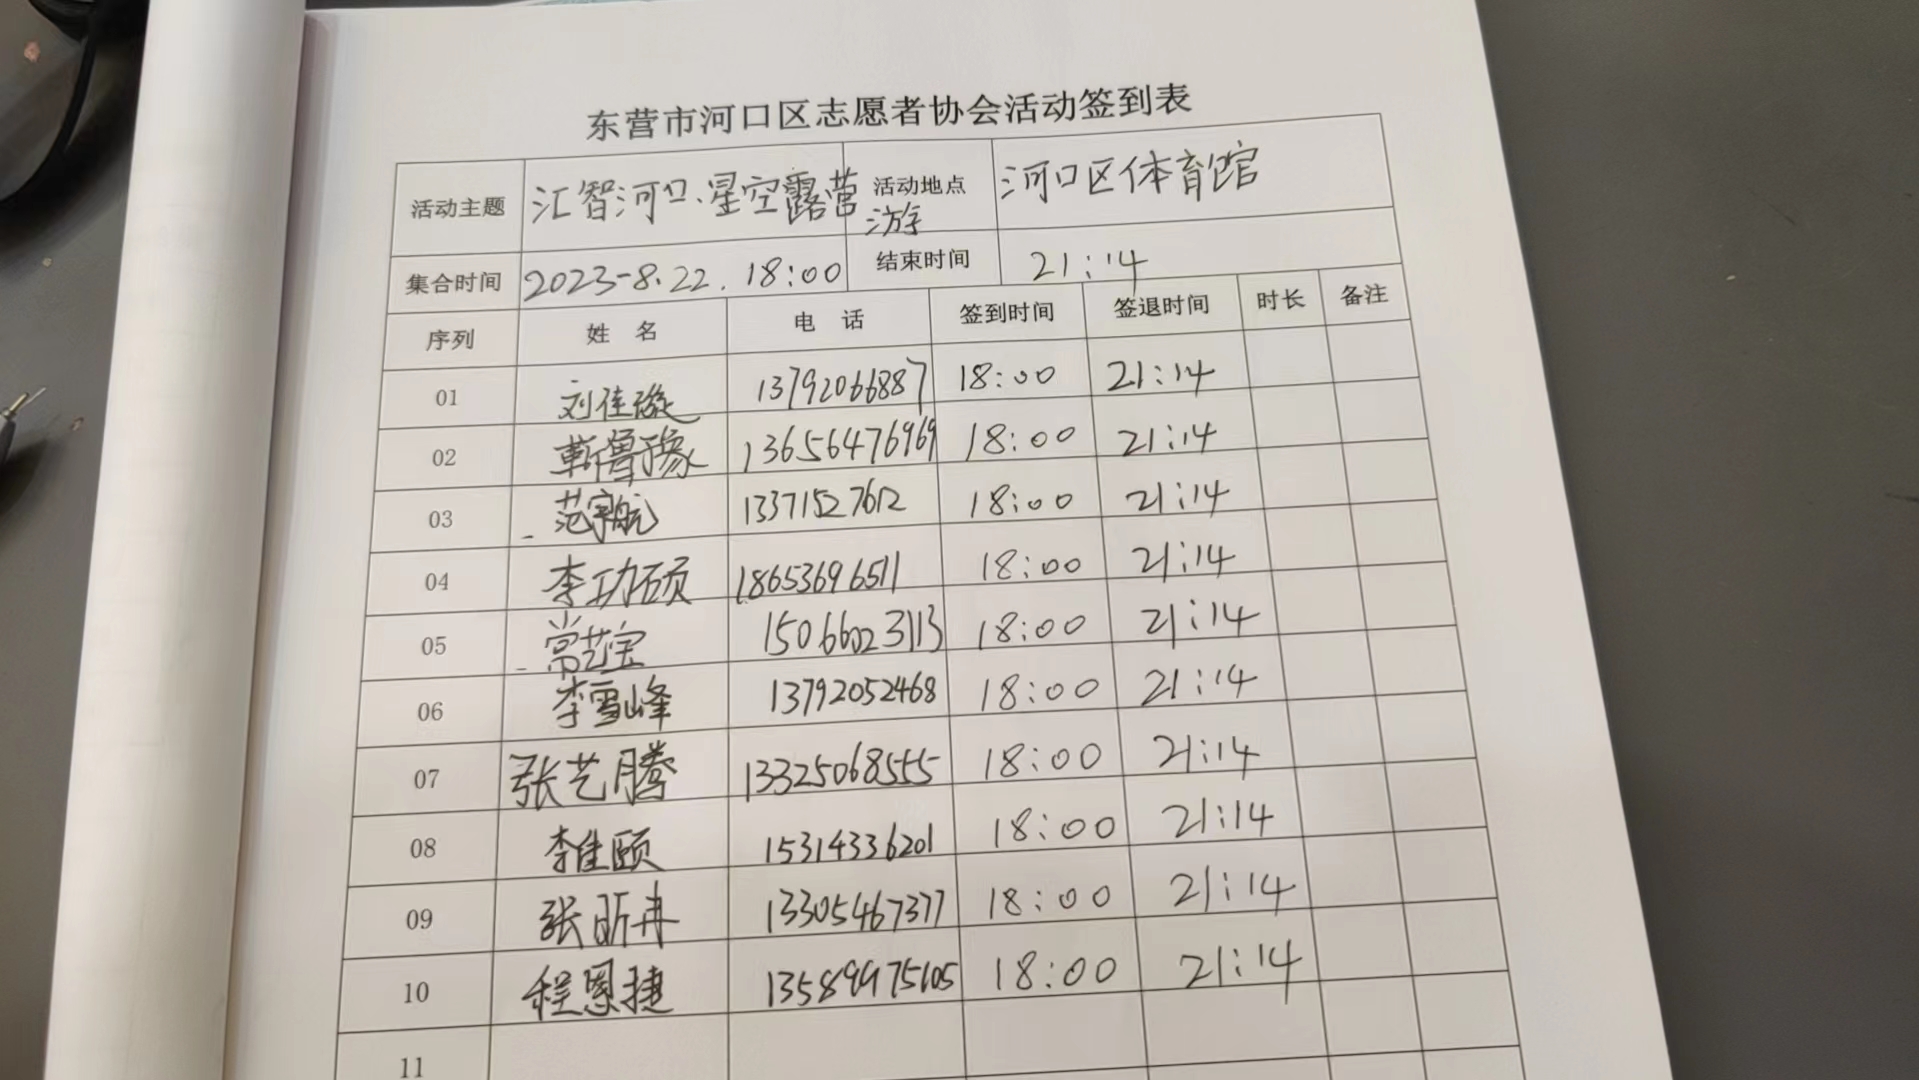 东营市河口区志愿者协会活动签到表
活动主题 汇智河口.星空露营游 活动地点 河口区体育馆
集合时间 2023-8.22. 18:00 结束时间 21:14
序列 姓名 电话 签到时间 签退时间 时长 备注
01 刘佳璇 13792066887 18:00 21:14
02 靳鲁豫 13656476969 18:00 21:14
03 范宇航 13371527612 18:00 21:14
04 李功硕 18653696511 18:00 21:14
05 常艺宝 15066023113 18:00 21:14
06 李雪峰 13792052468 18:00 21:14
07 张艺腾 13325068555 18:00 21:14
08 李佳颐 15314336201 18:00 21:14
09 张昕冉 13305467377 18:00 21:14
10 程恩捷 18:00 21:14
11